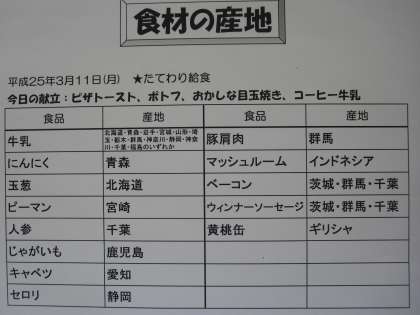 食材の産地
平成25年3月11日(月) ★たてわり給食
今日の献立：ピザトースト、ポトフ、おかしな目玉焼き、コーヒー牛乳
食品 産地 食品 産地
牛乳 北海道・青森・岩手・宮城・山形・埼玉・栃木・群馬・神奈川・静岡・神奈川・千葉・福島のいずれか 豚肩肉 群馬
にんにく 青森 マッシュルーム インドネシア
玉葱 北海道 ベーコン 茨城・群馬・千葉
ピーマン 宮崎 ウィンナーソーセージ 茨城・群馬・千葉
人参 千葉 黄桃缶 ギリシャ
じゃがいも 鹿児島
キャベツ 愛知
セロリ 静岡